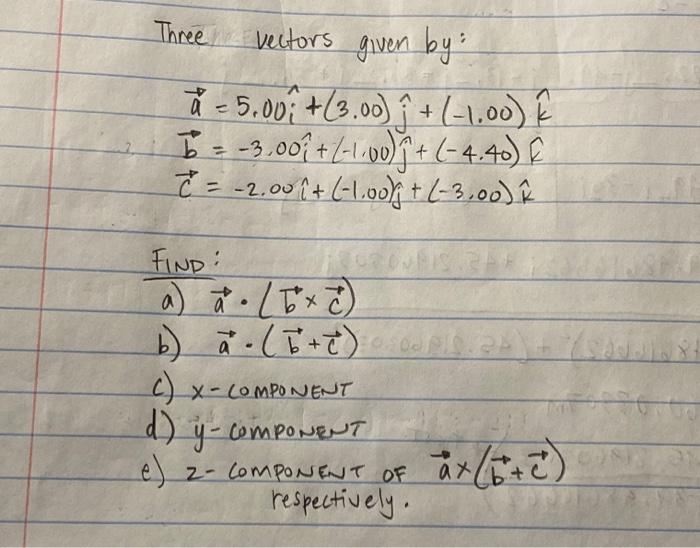 Three vectors given by:
a⃗ = 5.00î + (3.00) ĵ + (-1.00) k̂
b⃗ = -3.00î + (-1.00)ĵ + (-4.40) k̂
c⃗ = -2.00î + (-1.00)ĵ + (-3.00) k̂
FIND:
a) a⃗ • (b⃗ × c⃗)
b) a⃗ • (b⃗ + c⃗)
c) x-COMPONENT
d) y-COMPONENT
e) z-COMPONENT OF a⃗ × (b⃗ + c⃗)
respectively.